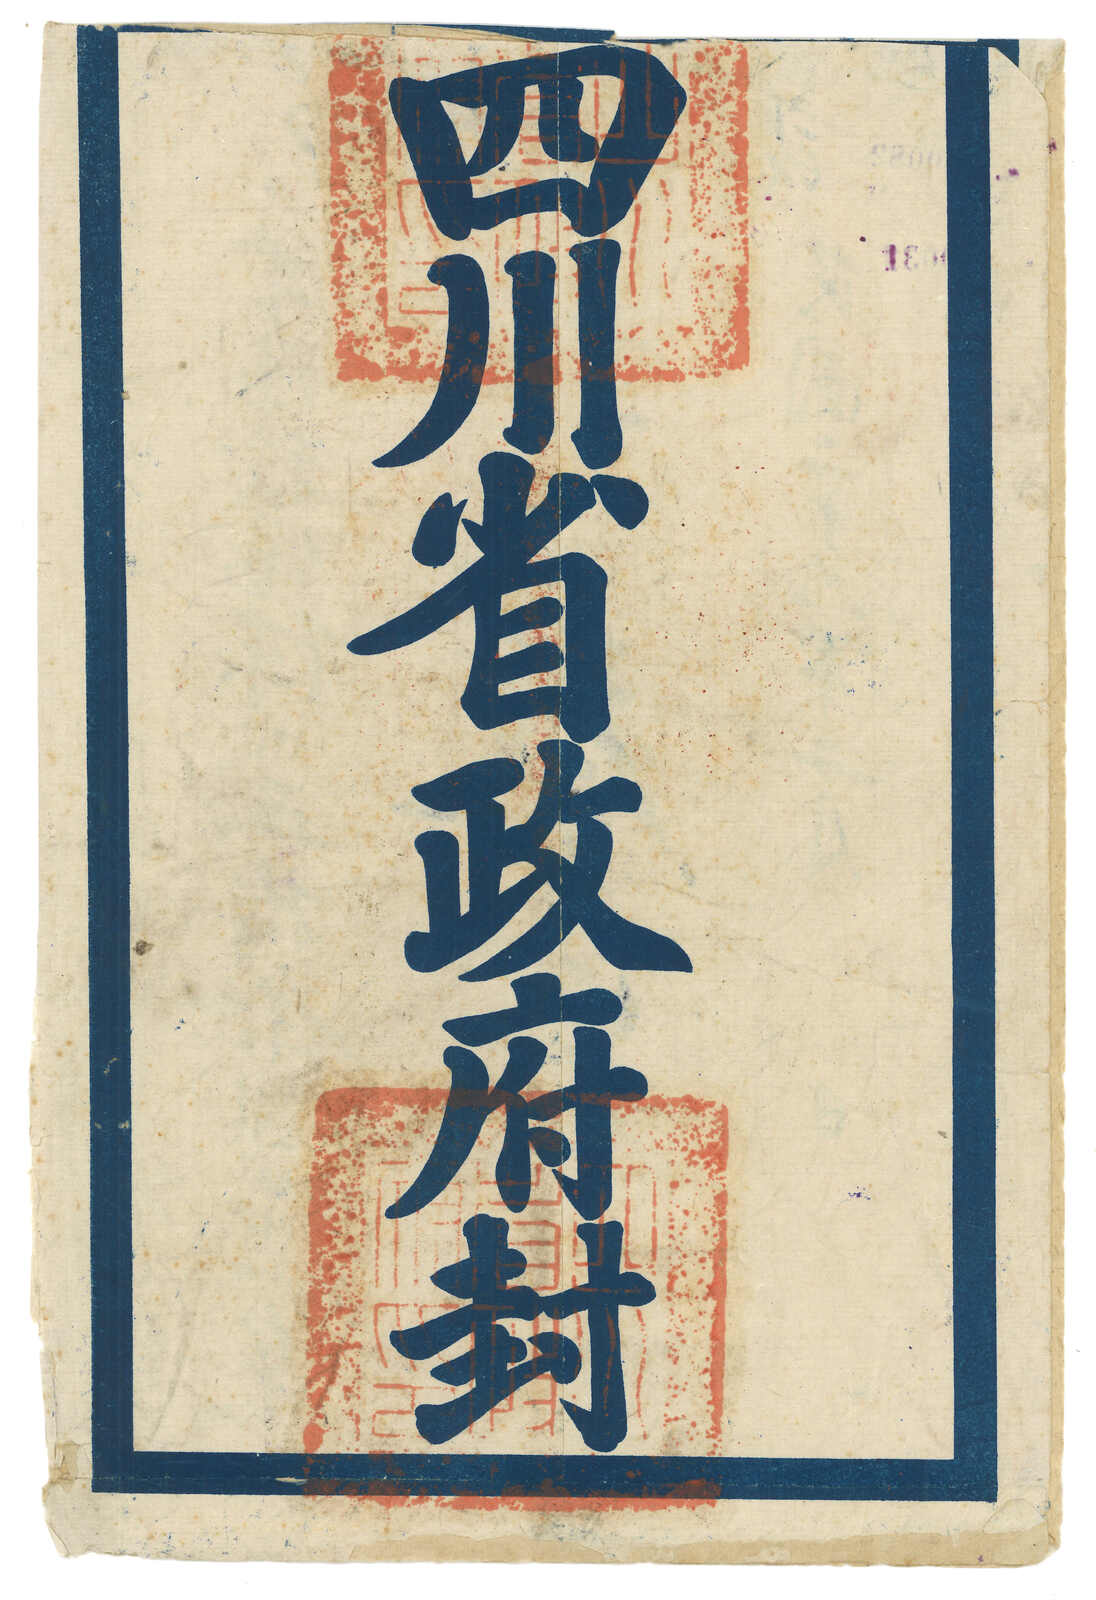 四川省政府封